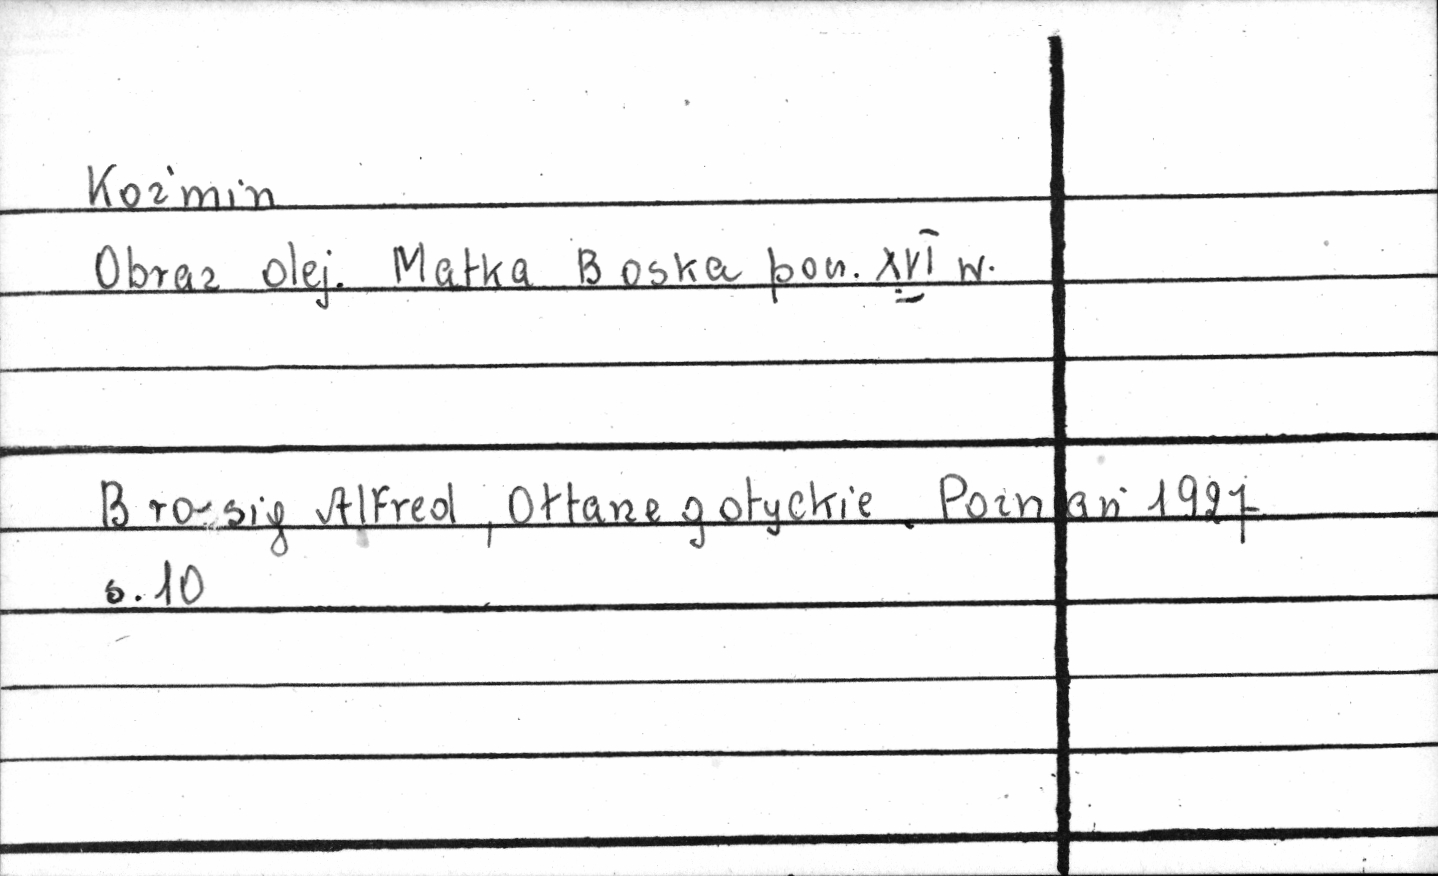 Koźmin
Obraz olej. Matka Boska poł. XVI w.
Brosig Alfred, Ołtarze gotyckie. Poznań 1927
s. 10